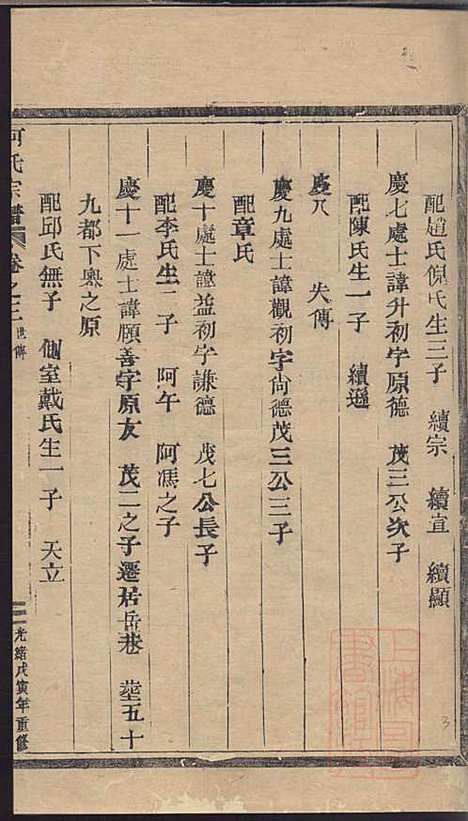 配趙氏倪氏生三子 續宗 續宜 續顯
慶七處士諱升初字原德 茂三公次子
配陳氏生一子 續遜
慶八 失傳
慶九處士諱觀初字尚德茂三公三子
配章氏
慶十處士諱益初字謙德 茂七公長子
配李氏生二子 阿午 阿馮之子
慶十一處士諱頤善字原友 茂二之子遷居岳巷 塟五十
九都下奧之原
配邱氏無子 側室戴氏生一子 天立
何氏宗譜 卷之三 世傳
光緒戊寅年重修